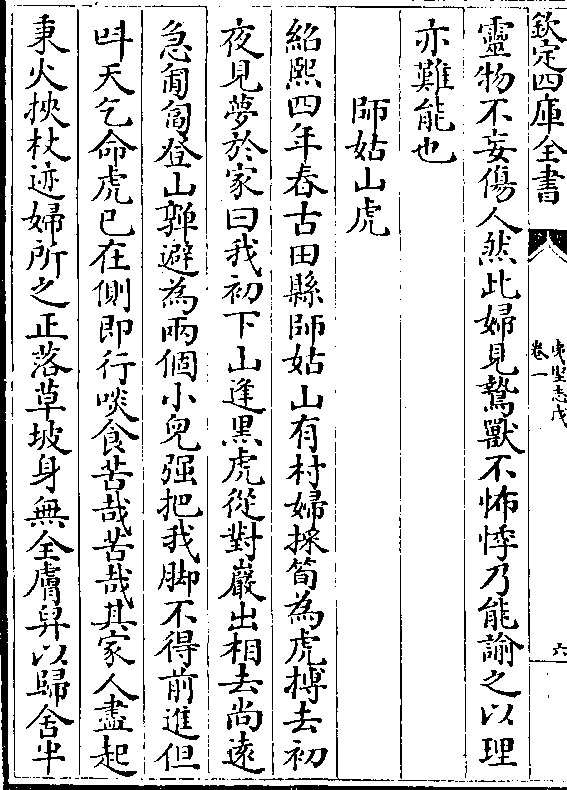 欽定四庫全書
夷堅志戊
卷一
六
靈物不妄傷人然此婦見鷙獸不怖悸乃能諭之以理
亦難能也
師姑山虎
紹熙四年春古田縣師姑山有村婦採筍為虎搏去初
夜見夢於家曰我初下山逢黑虎從對巖出相去尚遠
急匍匐登山嚲避為兩個小兒强把我脚不得前進但
呌天乞命虎已在側即行啖食苦哉苦哉其家人盡起
秉火挾杖迹婦所之正落草坡身無全膚舁以歸舍半